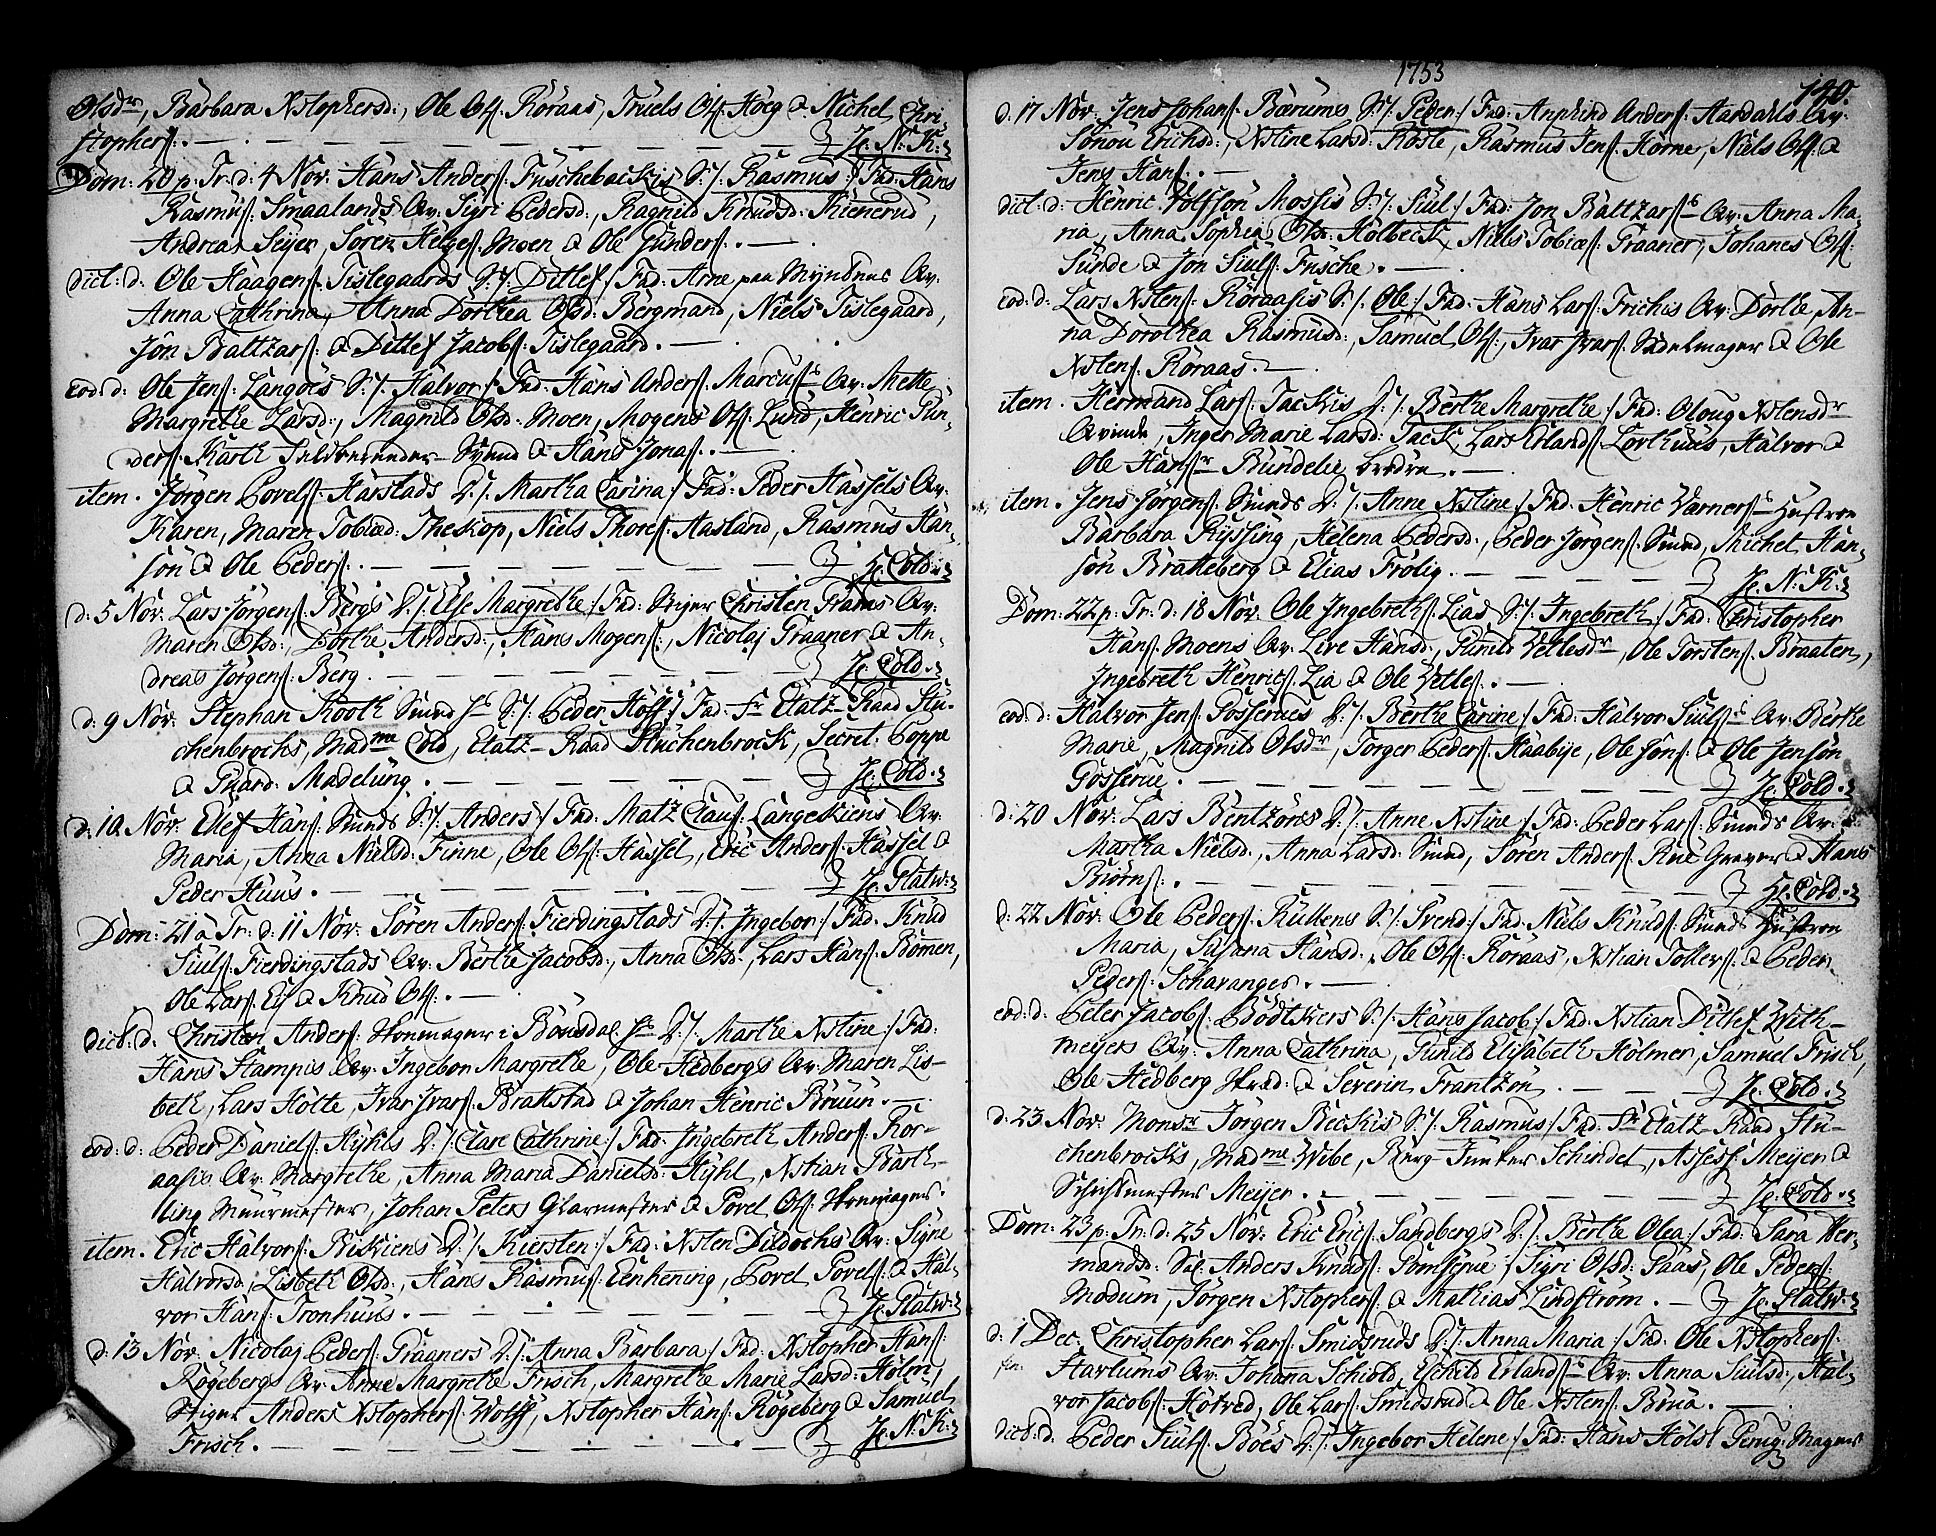 Olsdr, Barbara Xstophersd:, Ole Ols: Röraas, Truels Ols: Höeg & Nichel Chri
stophers: . — — — — — — } Je. N: K:
Dom: 20 p. Tr: d: 4 Nov: Hans Anders: Fuschebackis S:/: Rasmus :/ Fad: Hans
Rasmus: Smaalands Qv: Sigri Pedersd:, Ragnild Knudsd: Kienerud,
Andreas Seyer, Sören Helges: Moen & Ole Gunders: . —
dict: d: Ole Haagens: Tislegaards S:/: Ditlef :/ Fad: Arne paa Myntens Qv:
Anna Cathrina, Anna Dorthea Olsd: Bergmand, Niels Tislegaard,
Jon Baltzars: & Ditlef Jacobs: Tislegaard. —
eod: d: Ole Jens: Langöes S:/: Halvor :/ Fad: Hans Anders: Marcuss Qv: Mette
Margrethe Larsd:, Magnild Olsd: Moen, Mogens Ols: Lund, Henric Gun-
ders: Karth Svend & Hans Jonas: . —
item. Jörgen Povels: Harstads D:/: Martha Carina :/ Fad: Peder Hassels Qv:
Karen, Maren Tobiæd: Theskop, Niels Thores: Aasland, Rasmus Han-
sön & Ole Peders: . — — — — — } Je. Cold.
d: 5 Nov. Lars Jörgens: Bergs D:/: Else Margrethe :/ Fad: Stiger Christen Frams Qv:
Maren Olsd:, Dorthe Andersd:, Hans Mogens:, Nicolaj Graaner & An-
dreas Jörgens: Berg. — — — — — } Je. Cold.
d: 9 Nov: Stephan Kooth Smed hs S:/: Peder Höff :/ Fad: Fr Etatz-Raad Stu-
chenbrochs, Madme Cold, Etatz-Raad Stuchenbrock, Secret: Poppe
& Guard: Madelung. — — — — — } Je. Cold.
d: 10 Nov: Ellef Hans: Smeds S:/: Anders :/ Fad: Matz Claus: Langeskiens Qv:
Maria, Anna Nielsd: Finne, Ole Ols: Hassel, Eric Anders: Hassel &
Peder Huus. — — — — — } Je. Platw:
Dom: 21 a Tr: d: 11 Nov: Sören Anders: Fierdingstads D:/: Ingebor :/ Fad: Knud
Siuls: Fierdingstads Qv: Berthe Jacobsd:, Anna Olsd:, Lars Hans: Römen,
Ole Lars: Eg & Knud Ols: . —
dict: d: Christen Anders: Skoemager i Bönsdal hs D:/: Marthe Xstine :/ Fad:
Hans Stampis Qv: Ingebor Margrethe, Ole Hedbergs Qv: Maren Lis-
beth, Lars Holte, Ivar Ivars: Brattstad & Johan Henric Bruun. —
eod: d: Peder Daniels: Hykls D:/: Clare Cathrine :/ Fad: Ingebreth Anders: Kor-
aasis Qv: Margrethe, Anna Maria Danielsd: Hykl, Xstian Barth-
ling Muurmester, Johan Peters Glarmester & Povel Ols: Skoemager.
item. Eric Halvors: Biskiens D:/: Kiersten :/ Fad: Xsten Dildochs Qv: Signe
Halvorsd: Lisbeth Olsd:, Hans Rasmus: Eenhening, Povel Povels: & Hal-
vor Hans: Tronhuus. — — — — — } Je. Platw:
d: 13 Nov. Nicolaj Peders: Graaners D:/: Anna Barbara :/ Fad: Xstopher Hans:
Rögebergs Qv: Anne Margrethe Frisch, Margrethe Marie Larsd: Holm,
Stiger Anders Xstophers: Wolff, Xstopher Hans: Rögeberg & Samuel
Frisch. — — — — — } Je. N: K:
1753
140.
d: 17 Nov. Jens Johans: Bærums S:/: Peder :/ Fad: Anskind Anders: Aardahls Qv:
Sönou Erichsd:, Xstine Larsd: Röste, Rasmus Jens: Horne, Niels Ols: &
Jens Hans: . —
dict: d: Henric Volfsön Mossis S:/: Siul :/ Fad: Jon Baltzarss Qv: Anna Ma-
ria, Anna Sophia Olsd: Holbeck, Niels Tobiæs: Graaner, Johanes Ols:
Sunde & Jon Siuls: Fusche. —
eod: d: Lars Xstens: Röraasis S:/: Ole :/ Fad: Hans Lars: Frichis Qv: Dorthe, An-
na Dorothea Rasmusd:, Samuel Ols:, Ivar Ivars: Sadelmager & Ole
Xstens: Röraas. —
item. Hermand Lars: Tackis D:/: Berthe Margrethe :/ Fad: Oloug Xstensdr
Qvinde, Inger Marie Larsd: Tack, Lars Erlands: Lorthuus, Halvor &
Ole Hansr Bundelie brödre. —
item. Jens Jörgens: Smeds D:/: Anne Xstine :/ Fad: Henric Varnerss Hustroe
Barbara Ryssing, Helena Pedersd:, Peder Jörgens: Smed, Michel Han-
sön Bratteberg & Elias Frölig. — — — } Je. N: K:
Dom: 22 p: Tr: d: 18 Nov. Ole Ingebreths: Lias S:/: Ingebreth :/ Fad: Christopher
Hans: Moens Qv: Live Hansd:, Gunild Vetlesdr, Ole Torstens: Braaten,
Ingebreth Henrics: Lia & Ole Vetles: . —
eod: d: Halvor Jens: Gosserues D:/: Berthe Carine :/ Fad: Halvor Siulss Qv: Berthe
Marie, Magnild Olsdr, Torger Peders: Haabye, Ole Jöns: & Ole Jensön
Gosserue. — — — — — } Je. Cold.
d: 20 Nov. Lars Bentzöns D:/: Anne Xstine :/ Fad: Peder Lars: Smeds Qv:
Martha Nielsd:, Anna Larsd: Smed, Sören Anders: Rue Graver & Hans
Biörns: . — — — — — } Je. Cold.
d: 22 Nov: Ole Peders: Kullens S:/: Svend :/ Fad: Niels Knuds: Smeds Hustroe
Maria, Susana Hansd:, Ole Ols: Röraas, Xstian Tollefs: & Peder
Peders: Schavanges. —
eod: d: Peter Jacobs: Bödtkers S:/: Hans Jacob :/ Fad: Xstian Ditlef With-
meyers Qv: Anna Cathrina, Gunild Elisabeth Holmer, Samuel Frisch,
Ole Hedberg Skræd: & Severin Frantzön. — — } Je. Cold.
d: 23 Nov: Monsr Jörgen Beckis S:/: Rasmus :/ Fad: Fr Etatz-Raad Stu-
chenbrocks, Madme Wibe, Berg-Junker Schindel, Assess: Meijer &
Schichtmester Meijer. — — — — } Je. Cold.
Dom: 23 p. Tr: d: 25 Nov. Eric Erics: Sandbergs D:/: Berthe Olea :/ Fad: Sara Her-
mandsd: Anders Knuds: Pomserue, Sigri Olsd: Paas, Ole Peders:
Modum, Jörgen Xstophers: & Mathias Lindström. — } Je. Platw:
d: 1 Dec. Christopher Lars: Smidsruds D:/: Anna Maria :/ Fad: Ole Xstophers:
Harlums Qv: Johana Schiold, Eschild Erlandss Qv: Anna Siulsd:, Hal-
vor Jacobs: Hotved, Ole Lars: Smidsrud & Ole Xstens: Brua. —
dict: d: Peder Siuls: Böes D:/: Ingebor Helene :/ Fad: Hans Holst Peruq: Mager